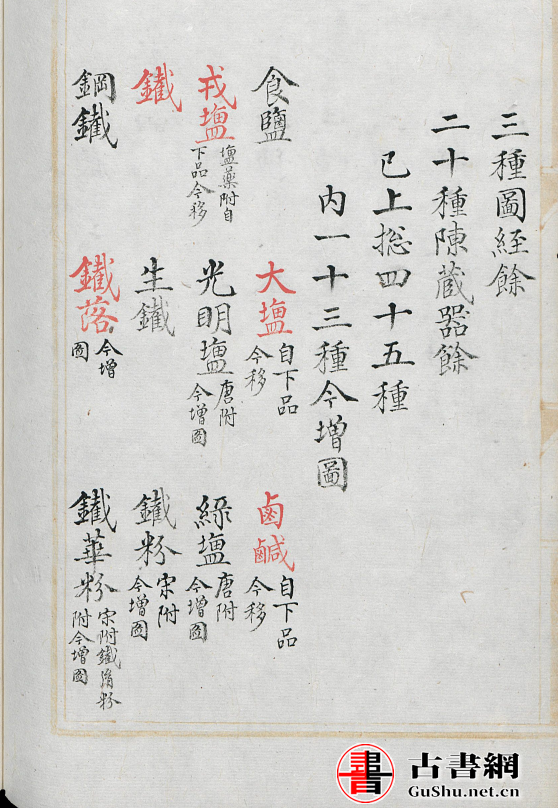 三種圖経餘
二十種陳蔵器餘
已上捴四十五種
内一十三種今增圖
食鹽 大塩自下品今移 鹵鹹自下品今移
戎塩塩藥附自下品今移 光明塩唐附今增圖 綠塩唐附今增圖
鐵 生鐵 鐵粉宋附今增圖
鋼鐵 鐵落今增圖 鐵華粉宋附鐵隋粉附今增圖
書
古書網
GuShu.net.cn